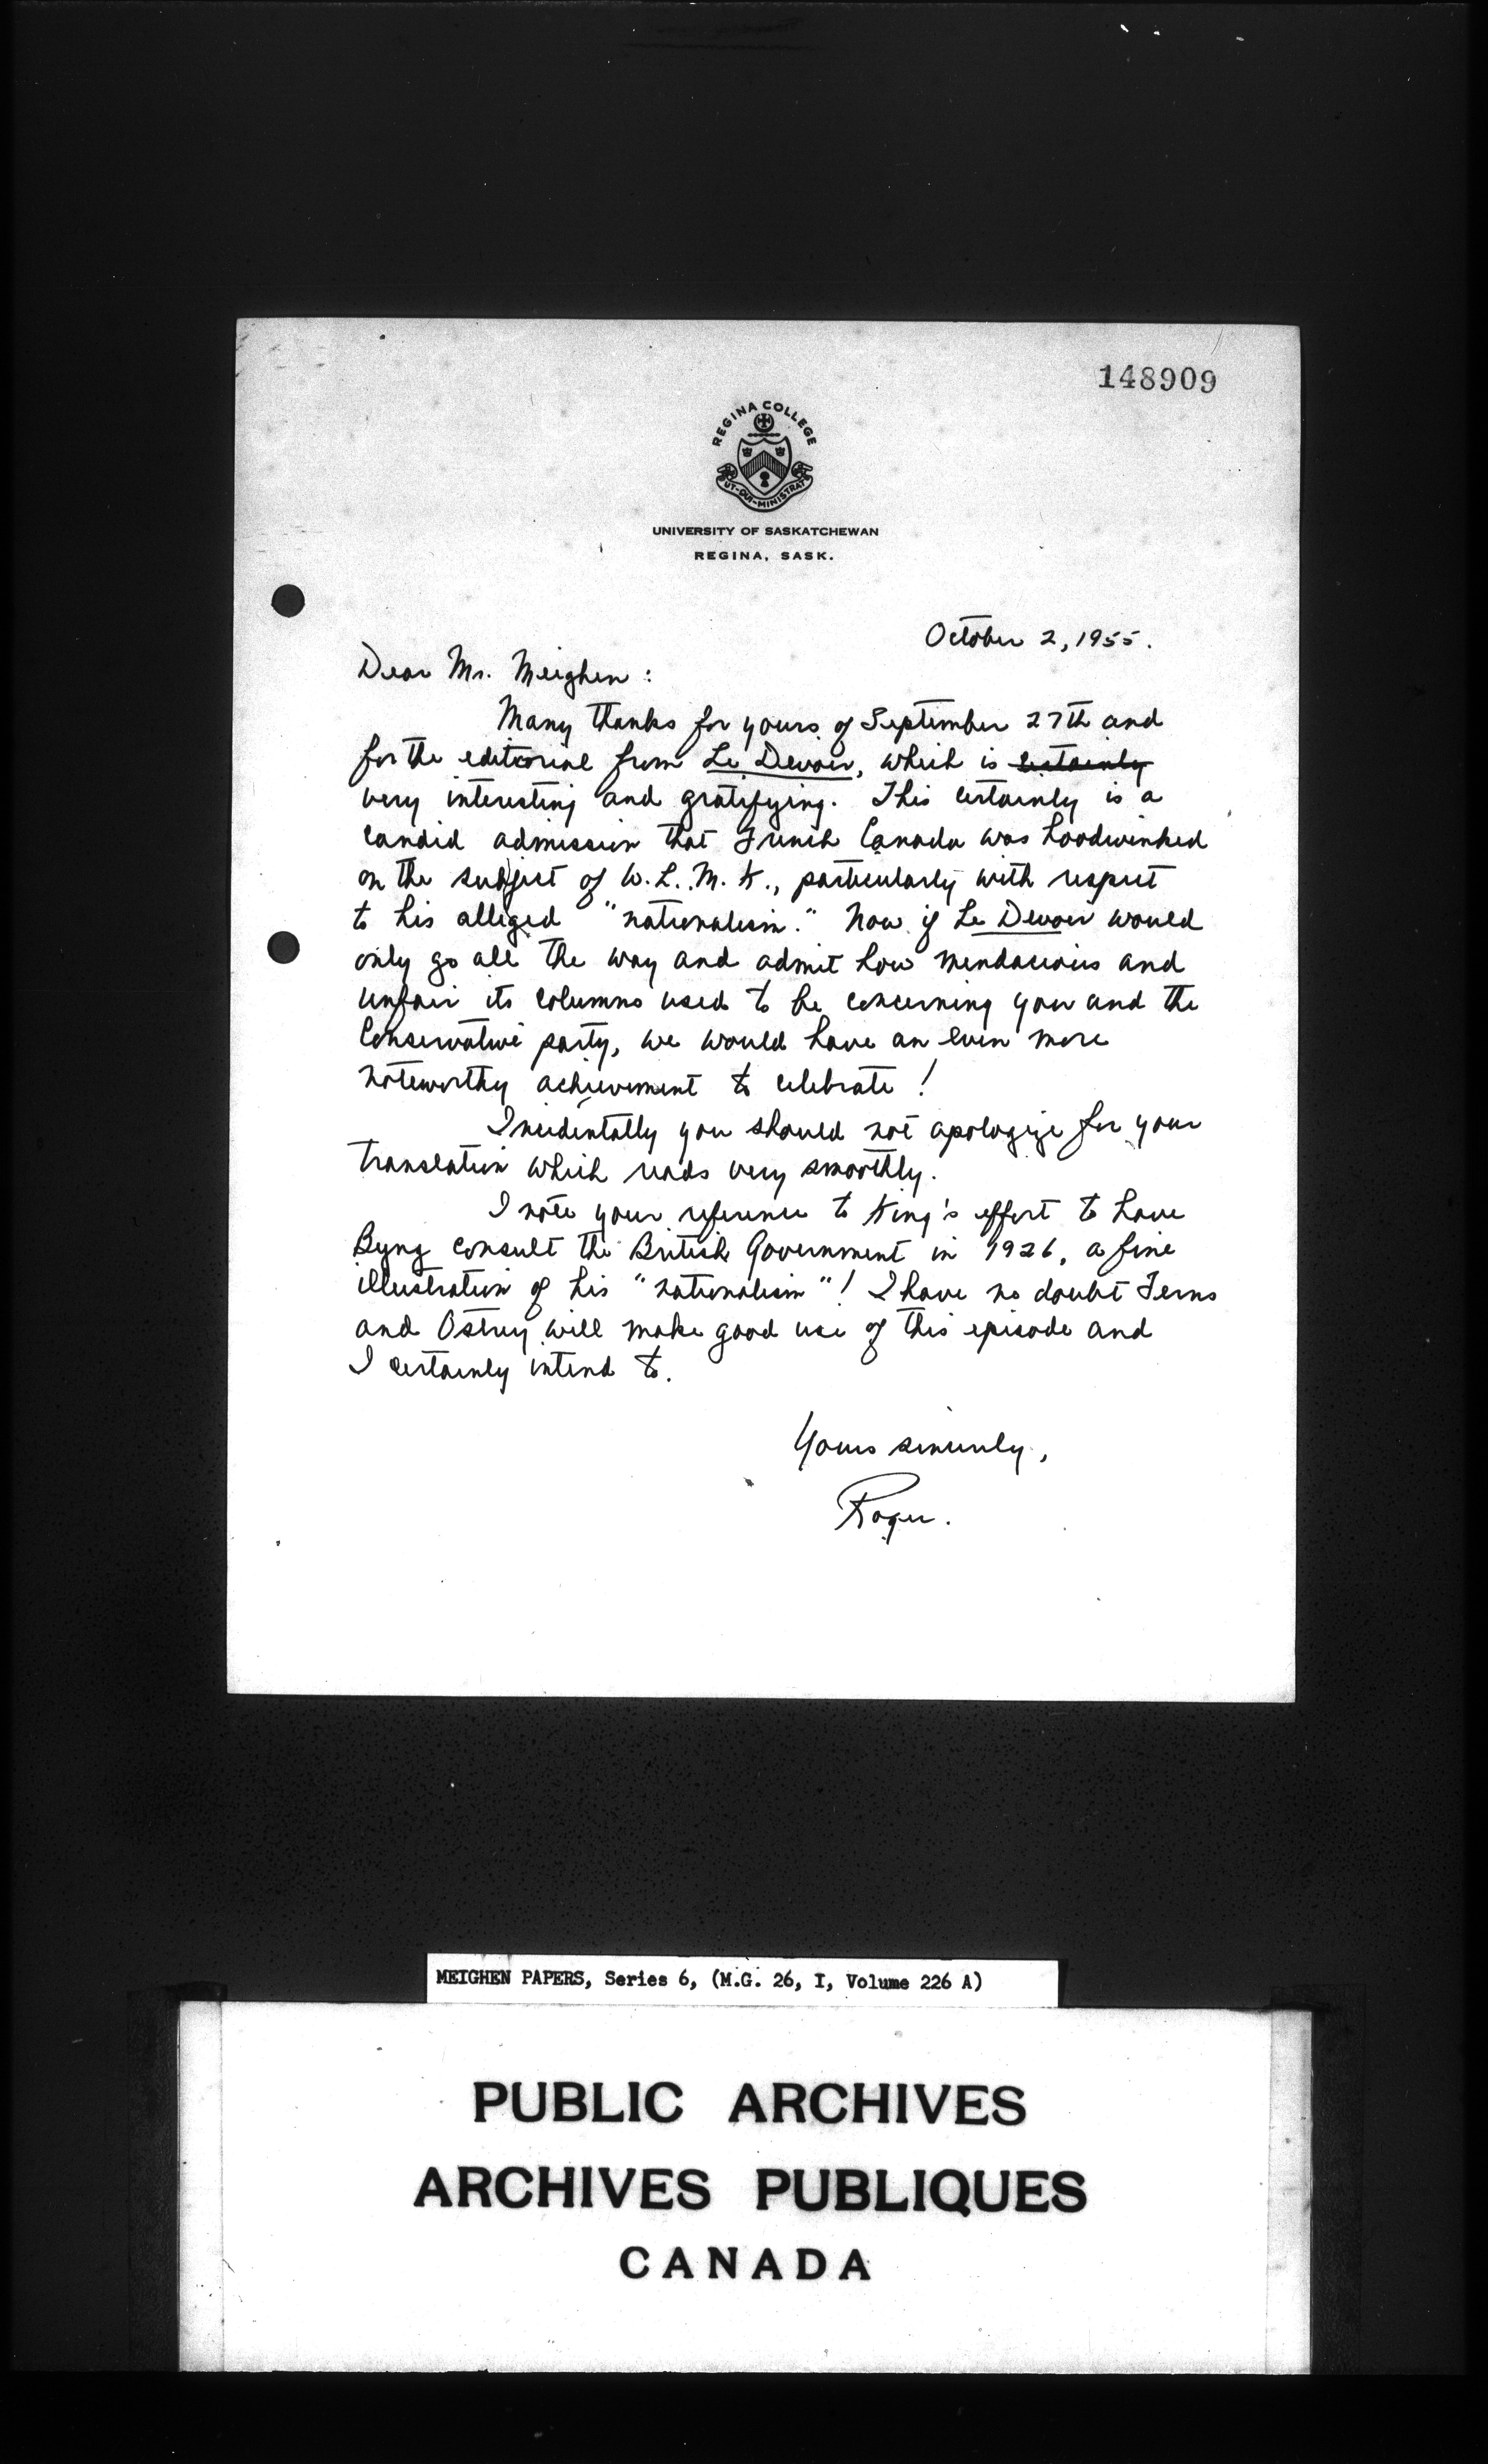 148909
REGINA COLLEGE
UT·QUI·MINISTRAT
UNIVERSITY OF SASKATCHEWAN
REGINA, SASK.
October 2, 1955.
Dear Mr. Meighen:
Many thanks for yours of September 27th and
for the editorial from Le Devoir, which is certainly
very interesting and gratifying. This certainly is a
candid admission that French Canada was hoodwinked
on the subject of W.L.M.K., particularly with respect
to his alleged "nationalism." Now if Le Devoir would
only go all the way and admit how mendacious and
unfair its columns used to be concerning you and the
Conservative party, we would have an even more
noteworthy achievement to celebrate!
Incidentally you should not apologize for your
translation which reads very smoothly.
I note your reference to King's effort to have
Byng consult the British Government in 1926, a fine
illustration of his "nationalism"! I have no doubt Ferns
and Ostry will make good use of this episode and
I certainly intend to.
Yours sincerely,
Roger.
MEIGHEN PAPERS, Series 6, (M.G. 26, I, Volume 226 A)
PUBLIC ARCHIVES
ARCHIVES PUBLIQUES
CANADA